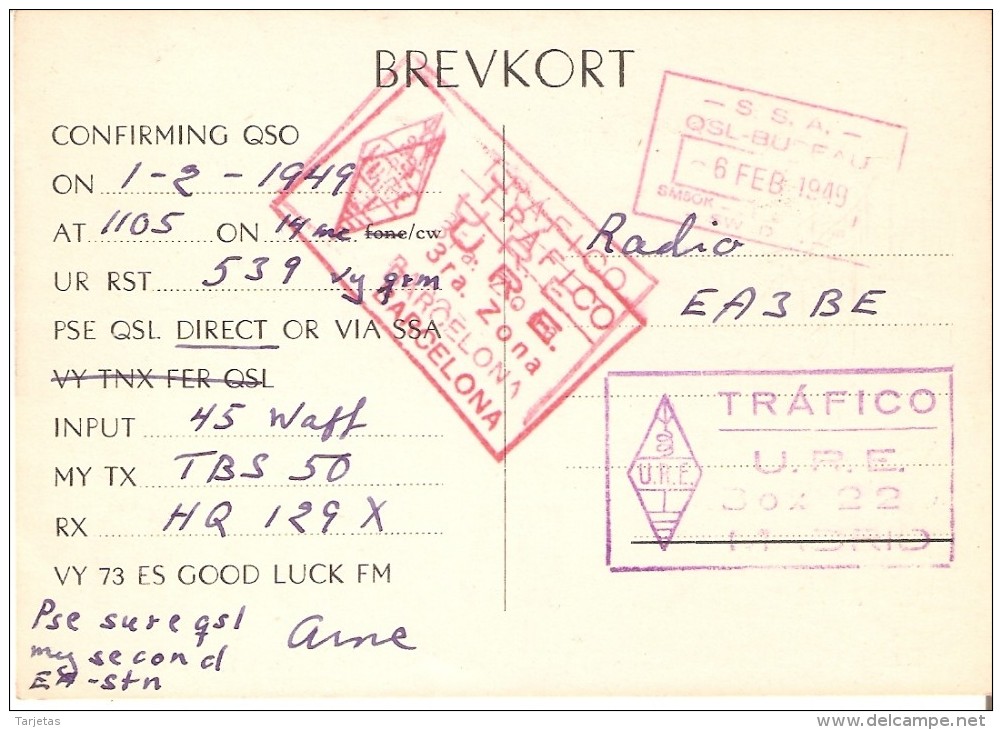 BREVKORT
CONFIRMING QSO
ON 1-2-1949
AT 1105 ON 14 mc fone/cw
UR RST 539 vy qrm
PSE QSL DIRECT OR VIA SSA
VY TNX FER QSL
INPUT 45 Waff
MY TX TBS 50
RX HQ 129 X
VY 73 ES GOOD LUCK FM
Pse sure qsl
my second
EA-stn
Arne
TRÁFICO
U. R. E.
3ra. Zona
BARCELONA
BARCELONA
- S. S. A. -
QSL-BUREAU
-6 FEB 1949
SM5OK
Radio
EA3BE
TRÁFICO
U.R.E.
U.R.E.
Box 22
MADRID
Tarjetas
www.delcampe.net